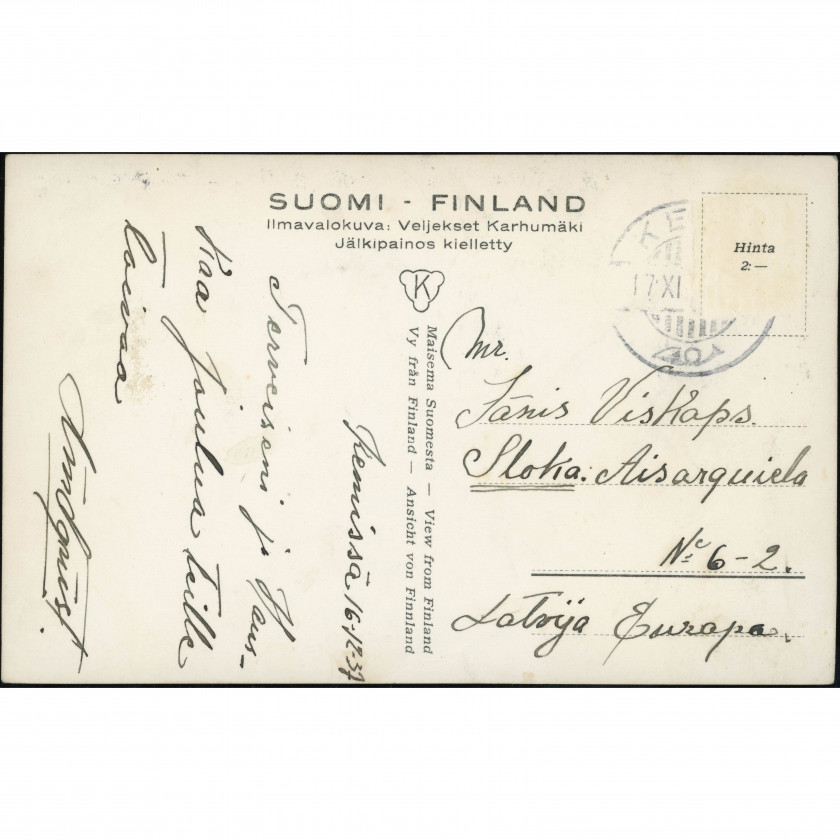 SUOMI - FINLAND
Ilmavalokuva: Veljekset Karhumäki
Jälkipainos kielletty
K
Maisema Suomesta — View from Finland
Vy från Finland — Ansicht von Finnland
Hinta
2:—
KE
17.XI
Kemissä 16-12-37
Terveiseni ja Haus-
kaa Joulua teille
toivoo
Lindqvist.
Mr.
Jānis Viskaps.
Sloka: Aisarguiela
№ 6-2.
Latvija Europa.